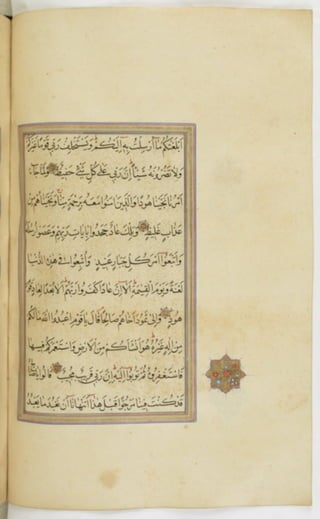 ابلغتكم ما ارسلت به اليكم ويستخلف ربى قوما غيركم
ولا تضرونه شيئا ان ربى على كل شئ حفيظ ولما جاء
امرنا نجينا هودا والذين امنوا معه برحمة منا ونجيناهم من
عذاب غليظ وتلك عاد جحدوا بايات ربهم وعصوا رسله
واتبعوا امر كل جبار عنيد واتبعوا فى هذه الدنيا
لعنة ويوم القيمة الا ان عادا كفروا ربهم الا بعدا لعاد قوم
هود والى ثمود اخاهم صالحا قال يا قوم اعبدوا الله مالكم
من اله غيره هو انشاكم من الارض واستعمركم فيها
فاستغفروه ثم توبوا اليه ان ربى قريب مجيب قالوا يا صالح
قد كنت فينا مرجوا قبل هذا اتنهانا ان نعبد ما يعبد